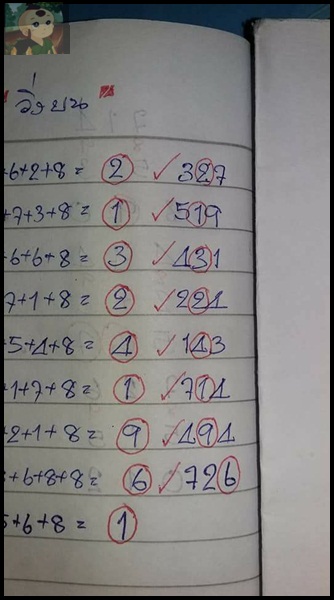 " วิ่งบน "
+6+2+8 = 2 ✓ 327
+7+3+8 = 1 ✓ 519
+6+6+8 = 3 ✓ 431
7+1+8 = 2 ✓ 224
+5+4+8 = 4 ✓ 143
+1+7+8 = 1 ✓ 714
+2+1+8 = 9 ✓ 494
+6+8+8 = 6 ✓ 726
5+6+8 = 1